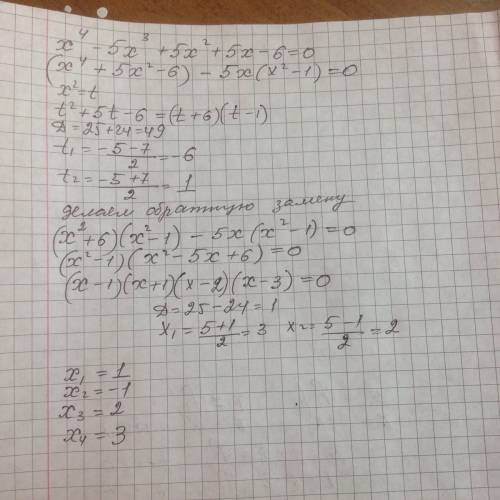 x⁴ - 5x³ + 5x² + 5x - 6 = 0
(x⁴ + 5x² - 6) - 5x(x² - 1) = 0
x² = t
t² + 5t - 6 = (t + 6)(t - 1)
D = 25 + 24 = 49
t₁ = (-5 - 7)/2 = -6
t₂ = (-5 + 7)/2 = 1
делаем обратную замену
(x² + 6)(x² - 1) - 5x(x² - 1) = 0
(x² - 1)(x² - 5x + 6) = 0
(x - 1)(x + 1)(x - 2)(x - 3) = 0
D = 25 - 24 = 1
x₁ = (5 + 1)/2 = 3 x₂ = (5 - 1)/2 = 2
x₁ = 1
x₂ = -1
x₃ = 2
x₄ = 3